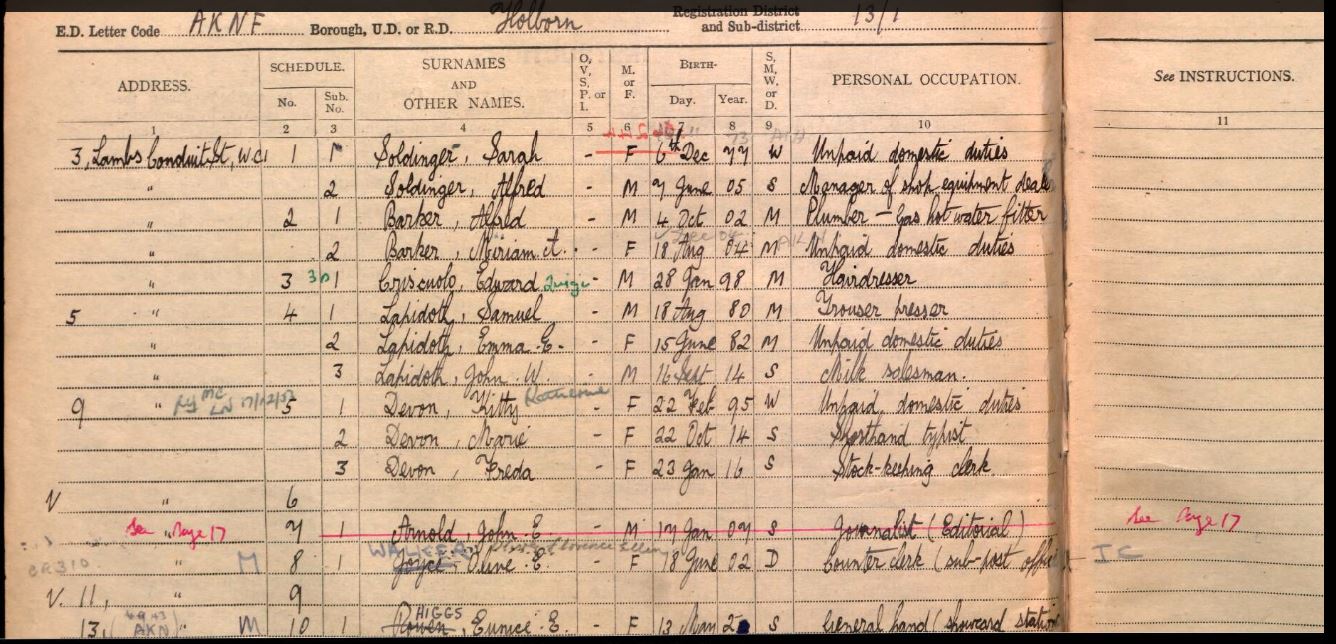 E.D. Letter Code AKNF Borough, U.D. or R.D. Holborn Registration District and Sub-district 13/1
ADDRESS. SCHEDULE. No. Sub. No. SURNAMES AND OTHER NAMES. O, V, S, P, or I. M. or F. BIRTH- Day. Year. S, M, W, or D. PERSONAL OCCUPATION. See INSTRUCTIONS.
1 2 3 4 5 6 7 8 9 10 11
3, Lambs Conduit St, W.C.1 1 1 Soldinger, Sarah - F 6th Dec 77 W Unpaid domestic duties
" 2 Soldinger, Alfred - M 7 June 05 S Manager of shop equipment dealer
" 2 1 Barker, Alfred - M 4 Oct 02 M Plumber - Gas hot water fitter
" 2 Barker, Miriam A. - F 18 Aug 04 M Unpaid domestic duties
" 3 1 Criscuolo, Edward Luigi - M 28 Jan 98 M Hairdresser
5 " 4 1 Lapidoth, Samuel - M 18 Aug 80 M Trouser presser
" 2 Lapidoth, Emma E. - F 15 June 82 M Unpaid domestic duties
" 3 Lapidoth, John W. - M 16 Sept 14 S Milk salesman.
9 " 5 1 Devon, Kitty Katherine - F 22 Feb 95 W Unpaid domestic duties
2 Devon, Marie - F 22 Oct 14 S Shorthand typist
3 Devon, Freda - F 23 Jan 16 S Stock-keeping clerk
V " 6
See Page 17 " 7 1 Arnold, John E - M 17 Jan 07 S Journalist (Editorial) See Page 17
CR310 " M 8 1 WALKER Joyce, Olive E. - F 18 June 02 D Counter clerk (sub-post office
V. 11, " 9
13, AKN " M 10 1 HIGGS Eunice E. - F 13 S General hand (showcard